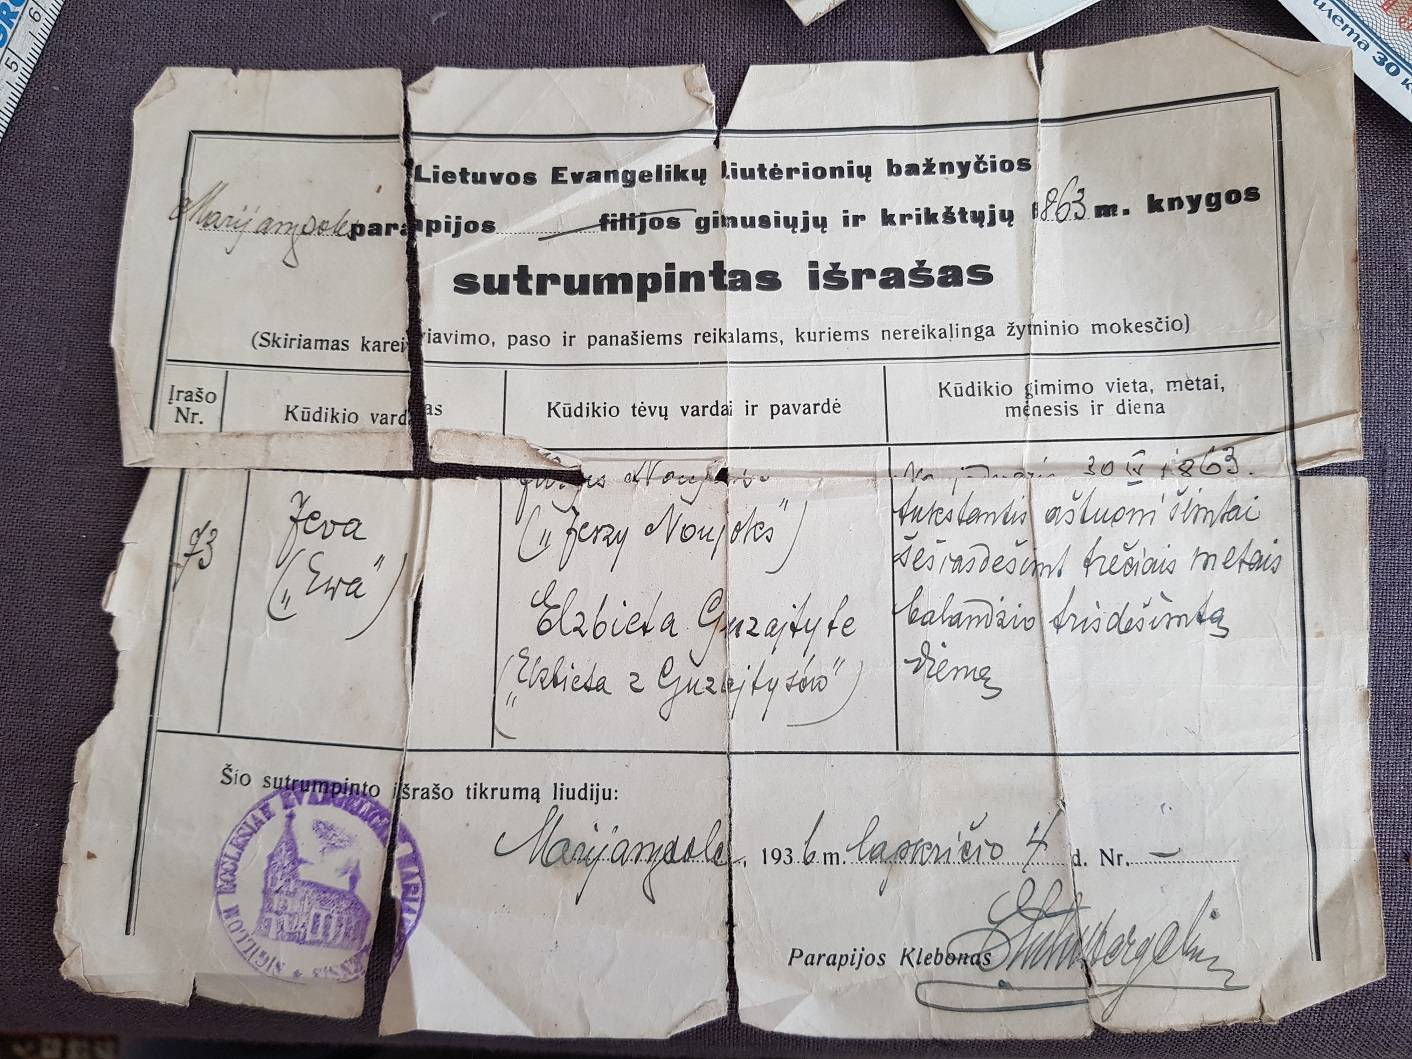 Lietuvos Evangelikų liutėrionių bažnyčios
Marijampolės parapijos filijos gimusiųjų ir krikštųjų 1863 m. knygos
sutrumpintas išrašas
(Skiriamas kareiviavimo, paso ir panašiems reikalams, kuriems nereikalinga žyminio mokesčio)
Įrašo Nr.
Kūdikio vardas
Kūdikio tėvų vardai ir pavardė
Kūdikio gimimo vieta, mėtai, mėnesis ir diena
30 IV 1863.
73
Jeva
("Ewa")
("Jerzy Noujoks")
Elzbieta Guzajtyte
("Elzbieta z Guzajtysów")
tukstantis aštuoni šimtai
šešiasdešimt trečiais metais
balandžio trisdešimtą
dieną
Šio sutrumpinto išrašo tikrumą liudiju:
SIGILLUM ECCLESIAE EVANGELICAE
Marijampolė, 1936 m. lapkričio 4 d. Nr. –
Parapijos Klebonas
илета 30 к